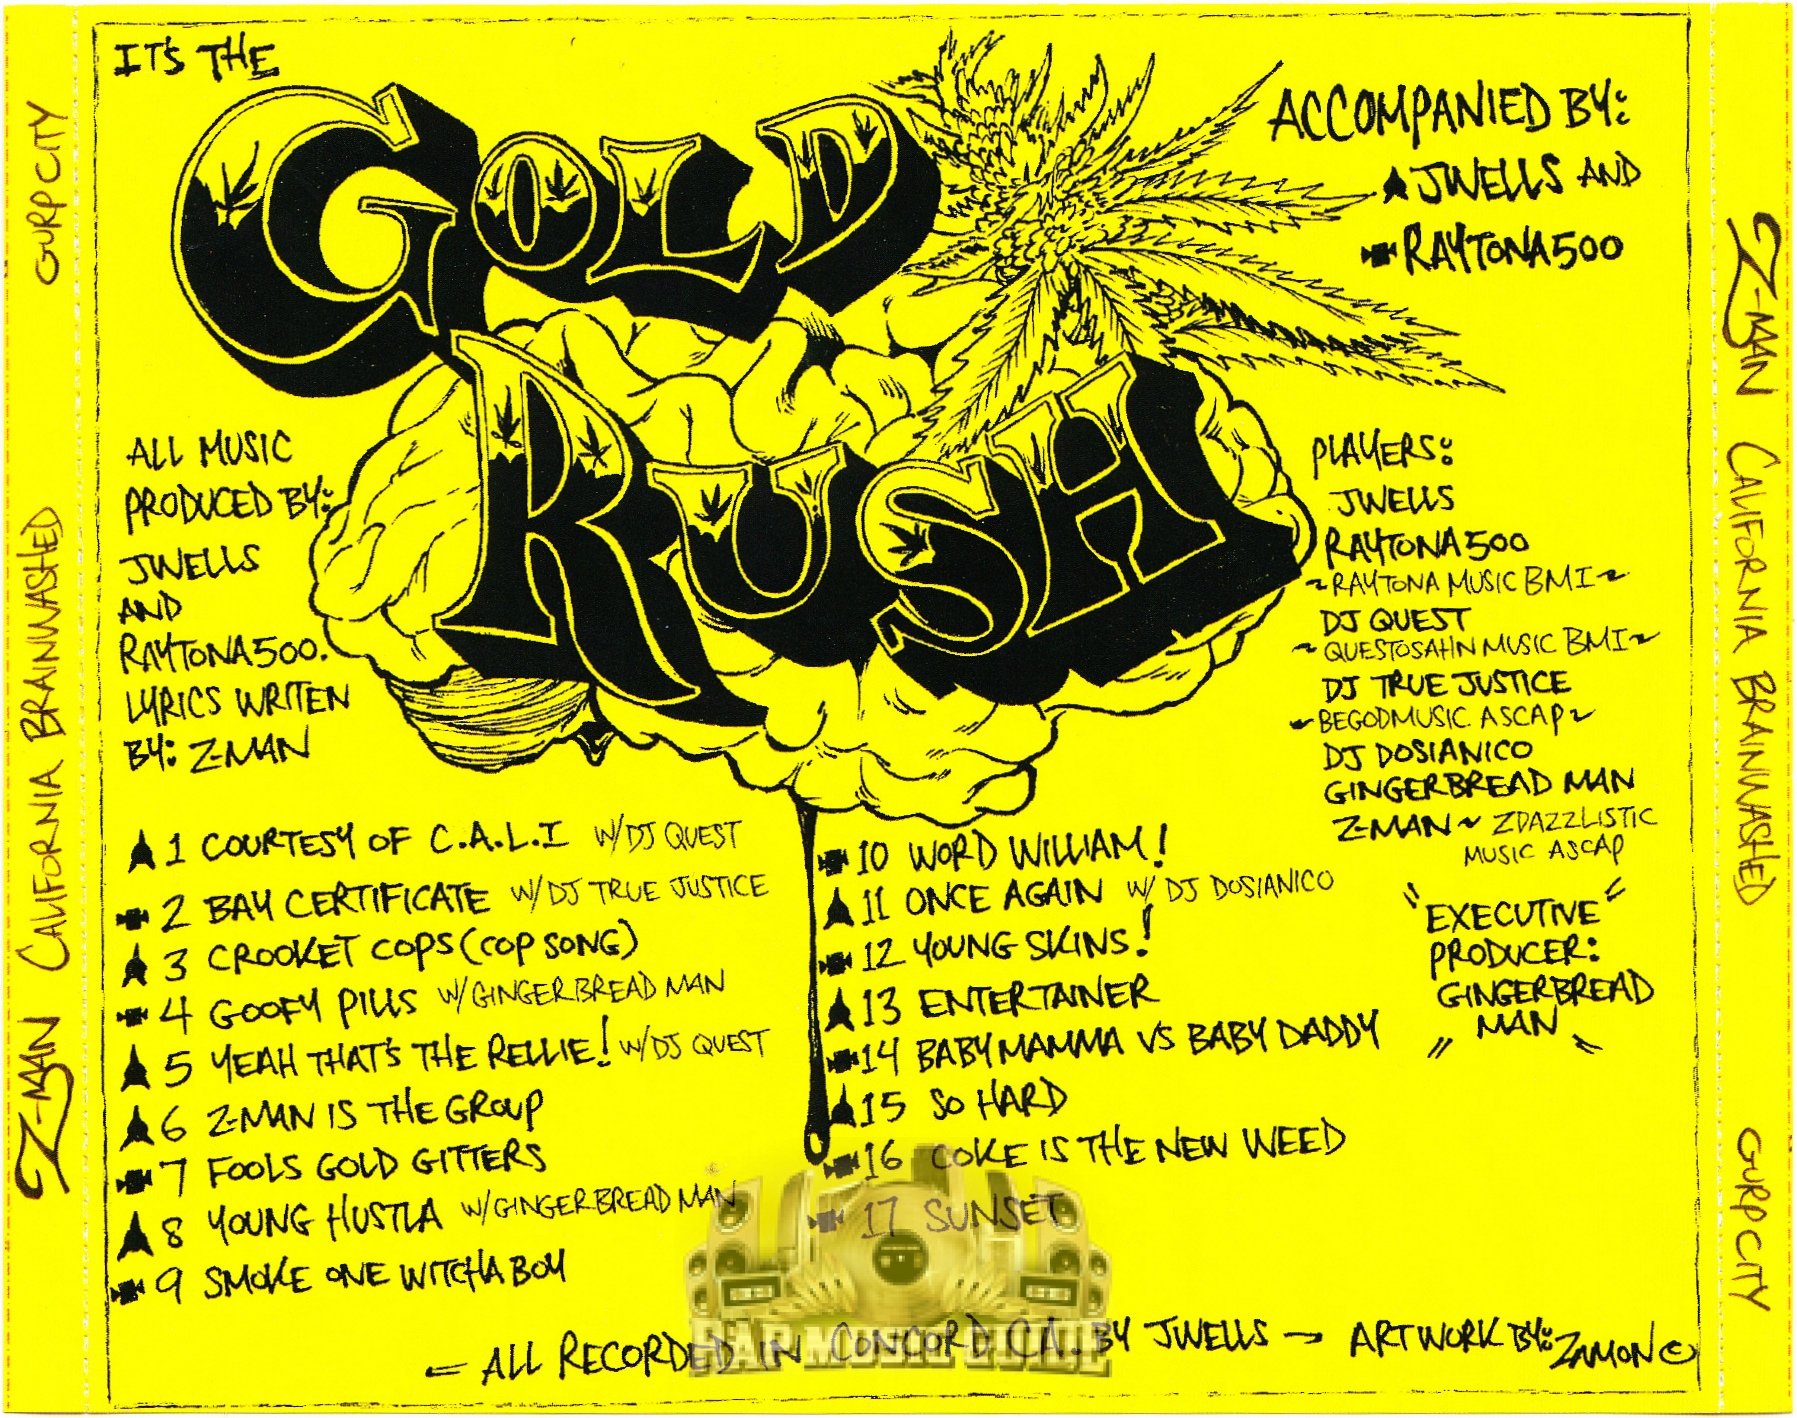 IT'S THE
GOLD
RUSH
ACCOMPANIED BY:
JWELLS AND
RAYTONA500
ALL MUSIC
PRODUCED BY:
JWELLS
AND
RAYTONA500.
LYRICS WRITEN
BY: Z-MAN
PLAYERS:
JWELLS
RAYTONA500
~RAYTONA MUSIC BMI~
DJ QUEST
~QUESTOSAHN MUSIC BMI~
DJ TRUE JUSTICE
~BEGODMUSIC ASCAP~
DJ DOSIANICO
GINGERBREAD MAN
Z-MAN~ ZDAZZLISTIC
MUSIC ASCAP
"EXECUTIVE
PRODUCER:
GINGERBREAD
MAN"
1 COURTESY OF C.A.L.I W/DJ QUEST
2 BAY CERTIFICATE W/DJ TRUE JUSTICE
3 CROOKET COPS (COP SONG)
4 GOOFY PILLS W/GINGERBREAD MAN
5 YEAH THAT'S THE RELLIE! W/DJ QUEST
6 Z-MAN IS THE GROUP
7 FOOLS GOLD GITTERS
8 YOUNG HUSTLA W/GINGERBREAD MAN
9 SMOKE ONE WITCHA BOY
10 WORD WILLIAM!
11 ONCE AGAIN W/ DJ DOSIANICO
12 YOUNG SKINS!
13 ENTERTAINER
14 BABY MAMMA VS BABY DADDY
15 SO HARD
16 COKE IS THE NEW WEED
17 SUNSET
← ALL RECORDED IN CONCORD CA. BY JWELLS → ARTWORK BY: ZAMON ©
RAP MUSIC GUIDE
Z-MAN CALIFORNIA BRAINWASHED GURP CITY
Z-MAN CALIFORNIA BRAINWASHED GURP CITY